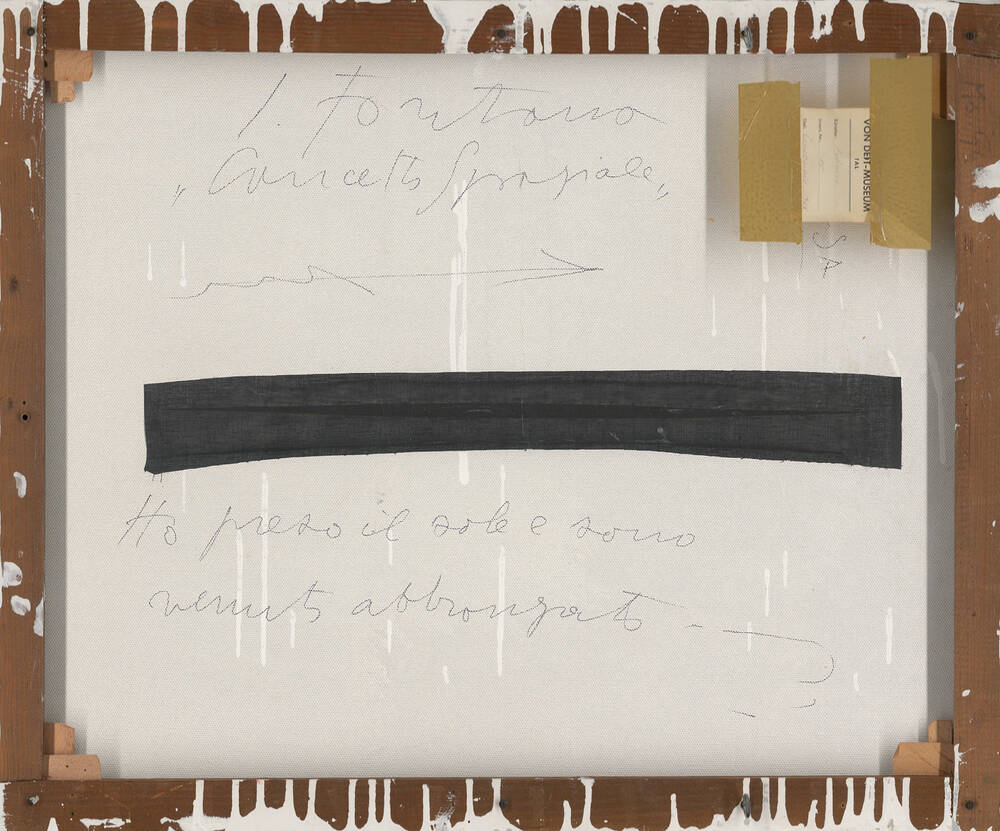 l. Fontana
„Concetto Spaziale„
VON DER HEYDT-MUSEUM
TAL
SA
Ho preso il sole e sono
venuto abbronzato -